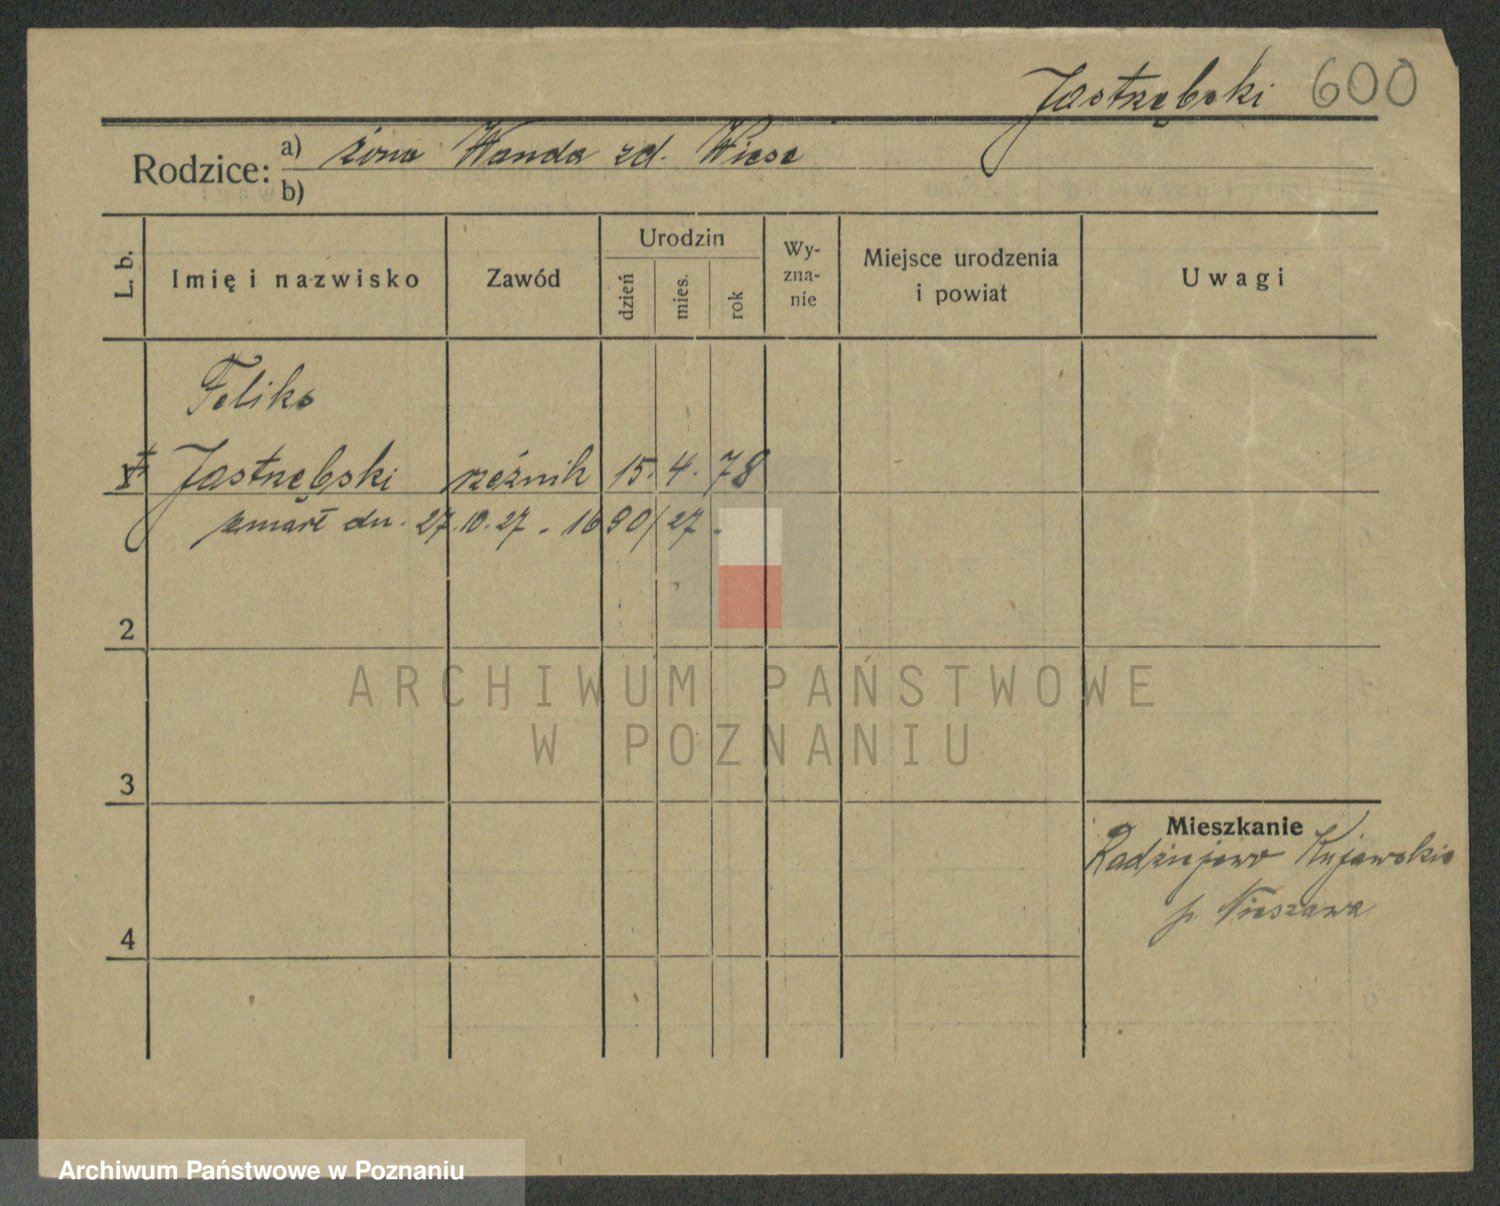 Jastrzębski 600
Rodzice: a) żona Wanda zd. Wiese
b)
L. b.
Imię i nazwisko
Zawód
Urodzin
dzień
mies.
rok
Wy-
zna-
nie
Miejsce urodzenia
i powiat
Uwagi
Feliks
1 Jastrzębski rzeźnik 15. 4. 78
zmarł dn. 27.10.27 - 1690/27 -
2
ARCHIWUM PAŃSTWOWE
W POZNANIU
3
Mieszkanie
Radziejewo Kujawskie
p. Nieszawa
4
Archiwum Państwowe w Poznaniu